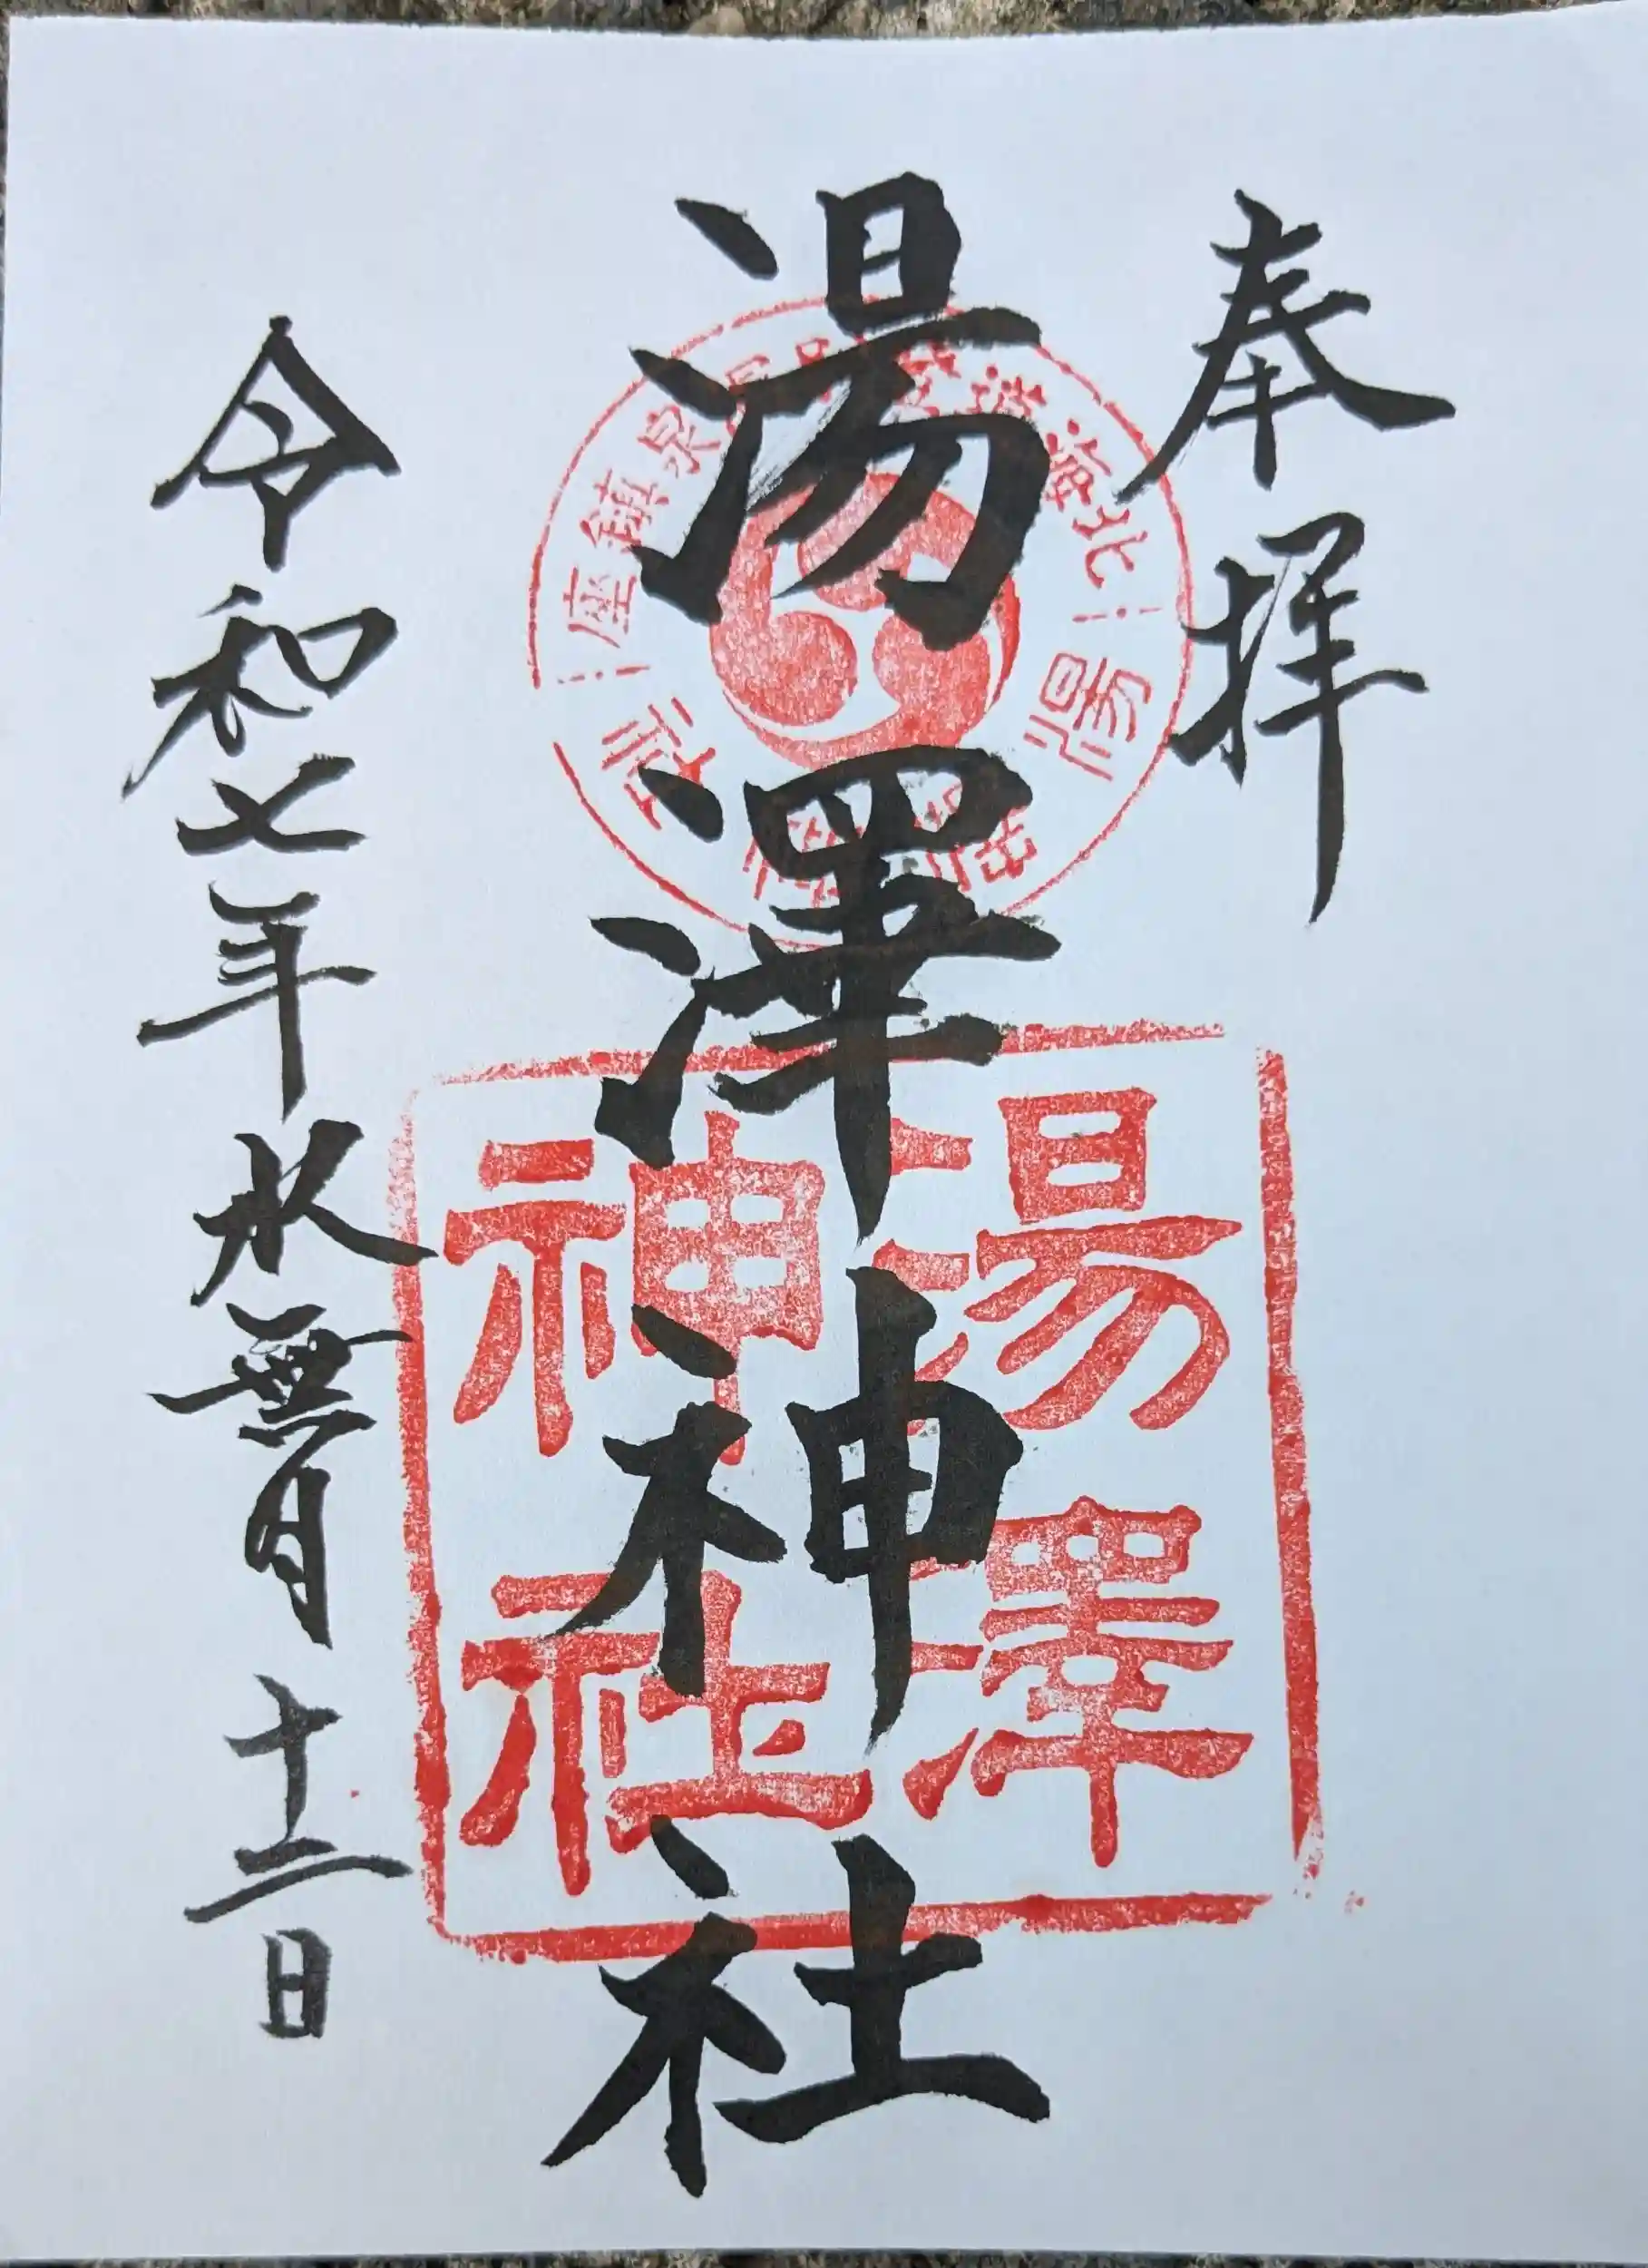 奉拝
湯澤神社
令和七年水無月十二日
北海道
泉鎮座
湯澤神社
湯澤
神社